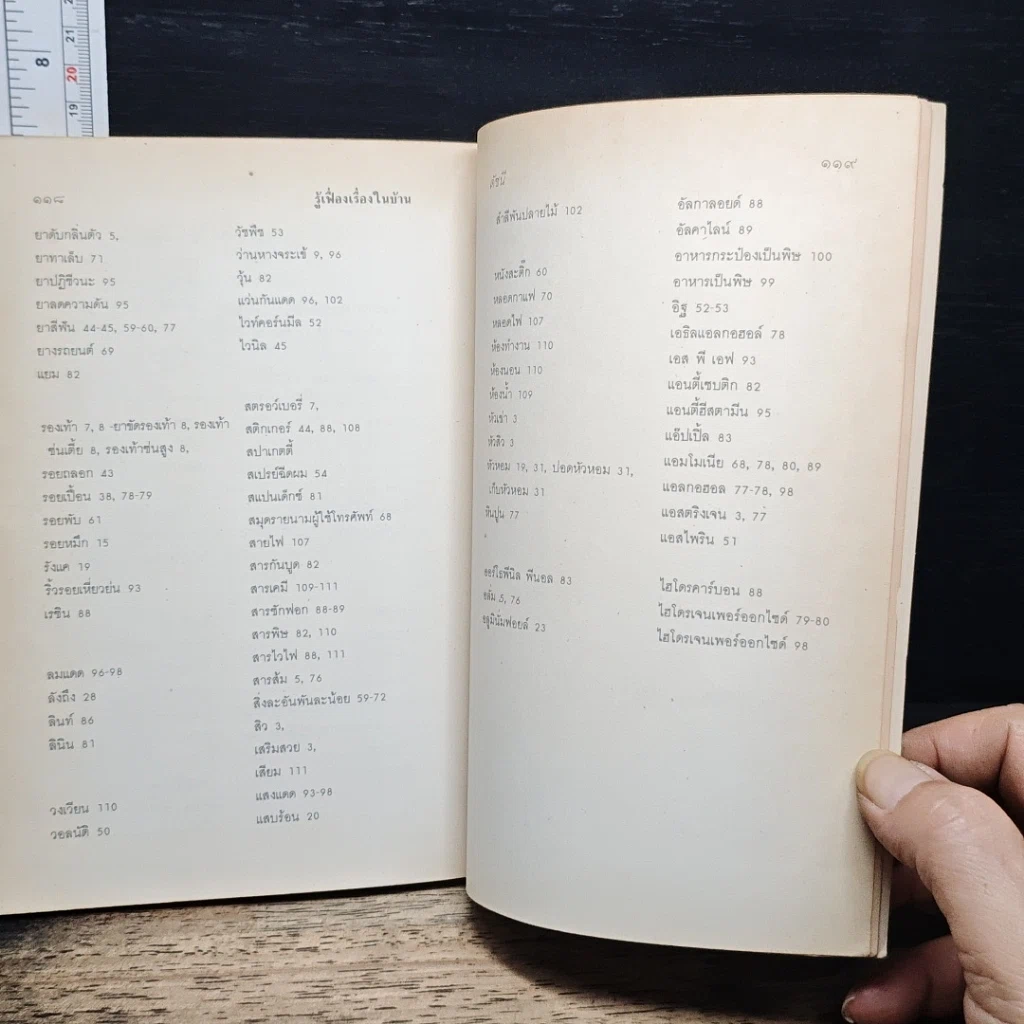 8
21
20
19
๑๑๘
รู้เฟื่องเรื่องในบ้าน
ยาดับกลิ่นตัว 5,
ยาทาเล็บ 71
ยาปฏิชีวนะ 95
ยาลดความดัน 95
ยาสีฟัน 44-45, 59-60, 77
ยางรถยนต์ 69
แยม 82
รองเท้า 7, 8 -ยาขัดรองเท้า 8, รองเท้า
ซ่นเตี้ย 8, รองเท้าซ่นสูง 8,
รอยถลอก 43
รอยเปื้อน 38, 78-79
รอยพับ 61
รอยหมึก 15
รังแค 19
ริ้วรอยเหี่ยวย่น 93
เรซิน 88
ลมแดด 96-98
ลังถึง 28
ลินท์ 86
ลินิน 81
วงเวียน 110
วอลนัติ 50
วัชพืช 53
ว่านหางจระเข้ 9, 96
วุ้น 82
แว่นกันแดด 96, 102
ไวท์คอร์นมีล 52
ไวนิล 45
สตรอว์เบอรี่ 7,
สติกเกอร์ 44, 88, 108
สปาเกตตี้
สเปรย์ฉีดผม 54
สแปนเด็กซ์ 81
สมุดรายนามผู้ใช้โทรศัพท์ 68
สายไฟ 107
สารกันบูด 82
สารเคมี 109-111
สารซักฟอก 88-89
สารพิษ 82, 110
สารไวไฟ 88, 111
สารส้ม 5, 76
สิ่งละอันพันละน้อย 59-72
สิว 3,
เสริมสวย 3,
เสียม 111
แสงแดด 93-98
แสบร้อน 20
ดัชนี
๑๑๙
สำลีพันปลายไม้ 102
หนังสะติ๊ก 60
หลอดกาแฟ 70
หลอดไฟ 107
ห้องทำงาน 110
ห้องนอน 110
ห้องน้ำ 109
หัวเข่า 3
หัวสิว 3
หัวหอม 19, 31, ปอดหัวหอม 31,
เก็บหัวหอม 31
หินปูน 77
ออร์โธฟีนิล ฟีนอล 83
อลัม 5, 76
อลูมินั่มฟอยล์ 23
อัลกาลอยด์ 88
อัลคาไลน์ 89
อาหารกระป๋องเป็นพิษ 100
อาหารเป็นพิษ 99
อิฐ 52-53
เอธิลแอลกอฮอล์ 78
เอส พี เอฟ 93
แอนตี้เซบติก 82
แอนตี้ฮีสตามีน 95
แอ๊ปเปิ้ล 83
แอมโมเนีย 68, 78, 80, 89
แอลกอฮอล 77-78, 98
แอสตริงเจน 3, 77
แอสไพริน 51
ไฮโดรคาร์บอน 88
ไฮโดรเจนเพอร์ออกไซด์ 79-80
ไฮโดรเจนเพอร์ออกไซด์ 98